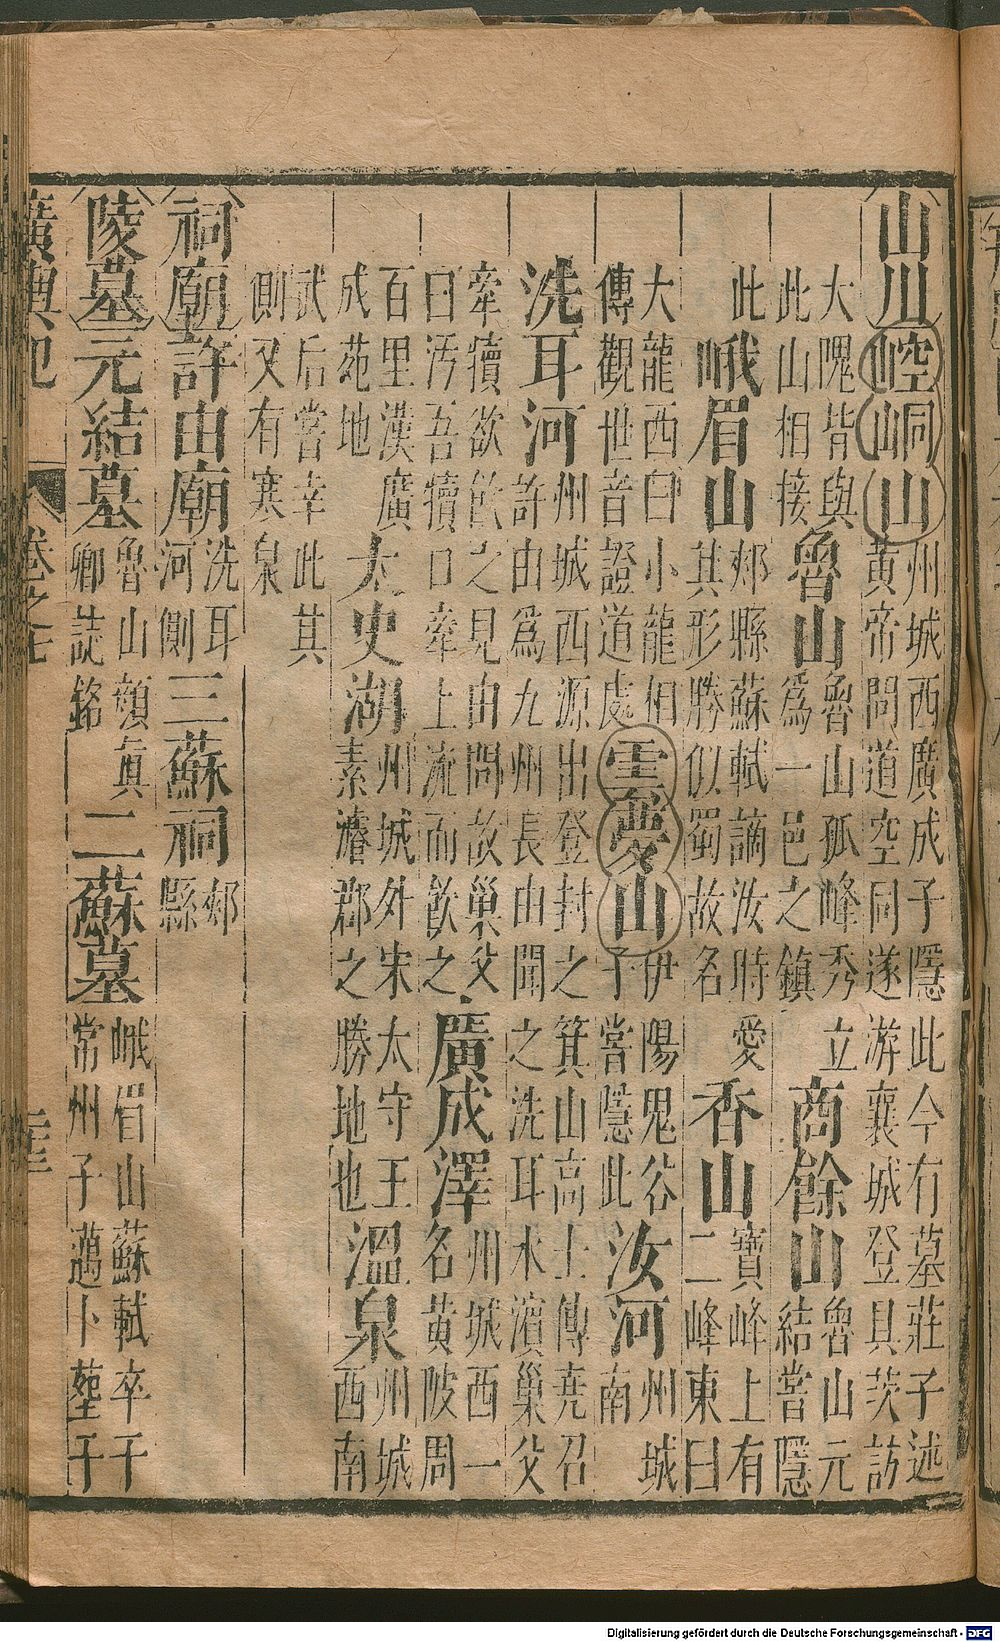 山川崆峒山州城西廣成子隱此今有墓莊子述黄帝問道空同遂游襄城登具茨訪
大隗皆與此山相接魯山魯山孤峰秀立爲一邑之鎮商餘山魯山元結嘗隱
此峨眉山郟縣蘇軾謫汝時愛其形勝似蜀故名香山寶峰上有二峰東曰
大龍西曰小龍相傳觀世音證道處雲夢山伊陽鬼谷子嘗隱此汝河州城南
洗耳河州城西源出登封之箕山高士傳堯召許由爲九州長由聞之洗耳水濱巢父
牽犢欲飲之見由問故巢父曰汚吾犢口牽上流而飲之廣成澤州城西一名黄陂周
百里漢廣成苑地太史湖州城外宋太守王素濬郡之勝地也溫泉州城西南
武后嘗幸此其側又有寒泉
祠廟許由廟洗耳河側三蘇祠郟縣
陵墓元結墓魯山顏真卿誌銘二蘇墓峨眉山蘇軾卒于常州子邁卜塟于
廣輿記 卷之七
Digitalisierung gefördert durch die Deutsche Forschungsgemeinschaft - DFG